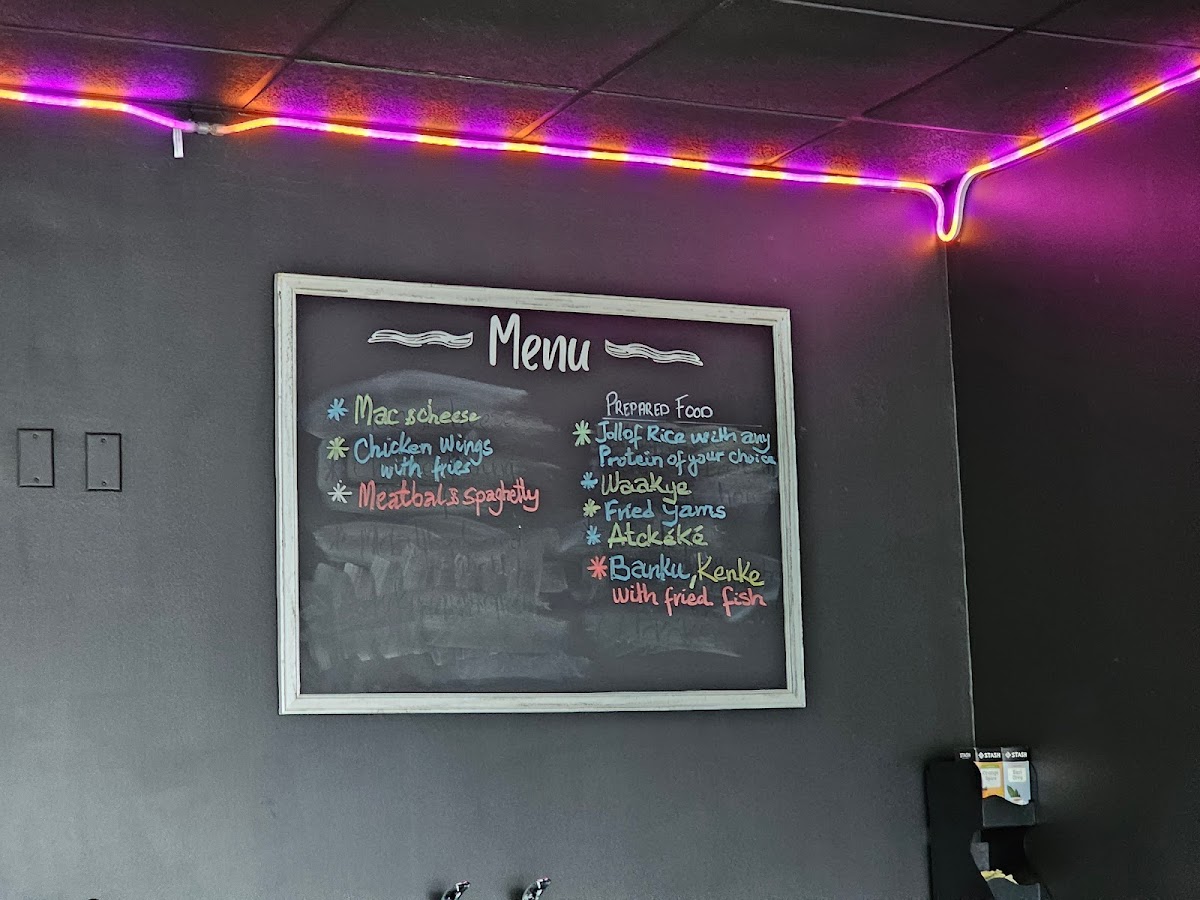 Menu
Mac & cheese
Chicken Wings
with fries
Meatbal & spaghetty
PREPARED FOOD
Jollof Rice with any
Protein of your choice
Waakye
Fried yams
Atckéké
Banku, Kenke
with fried fish
STASH
STASH
STASH